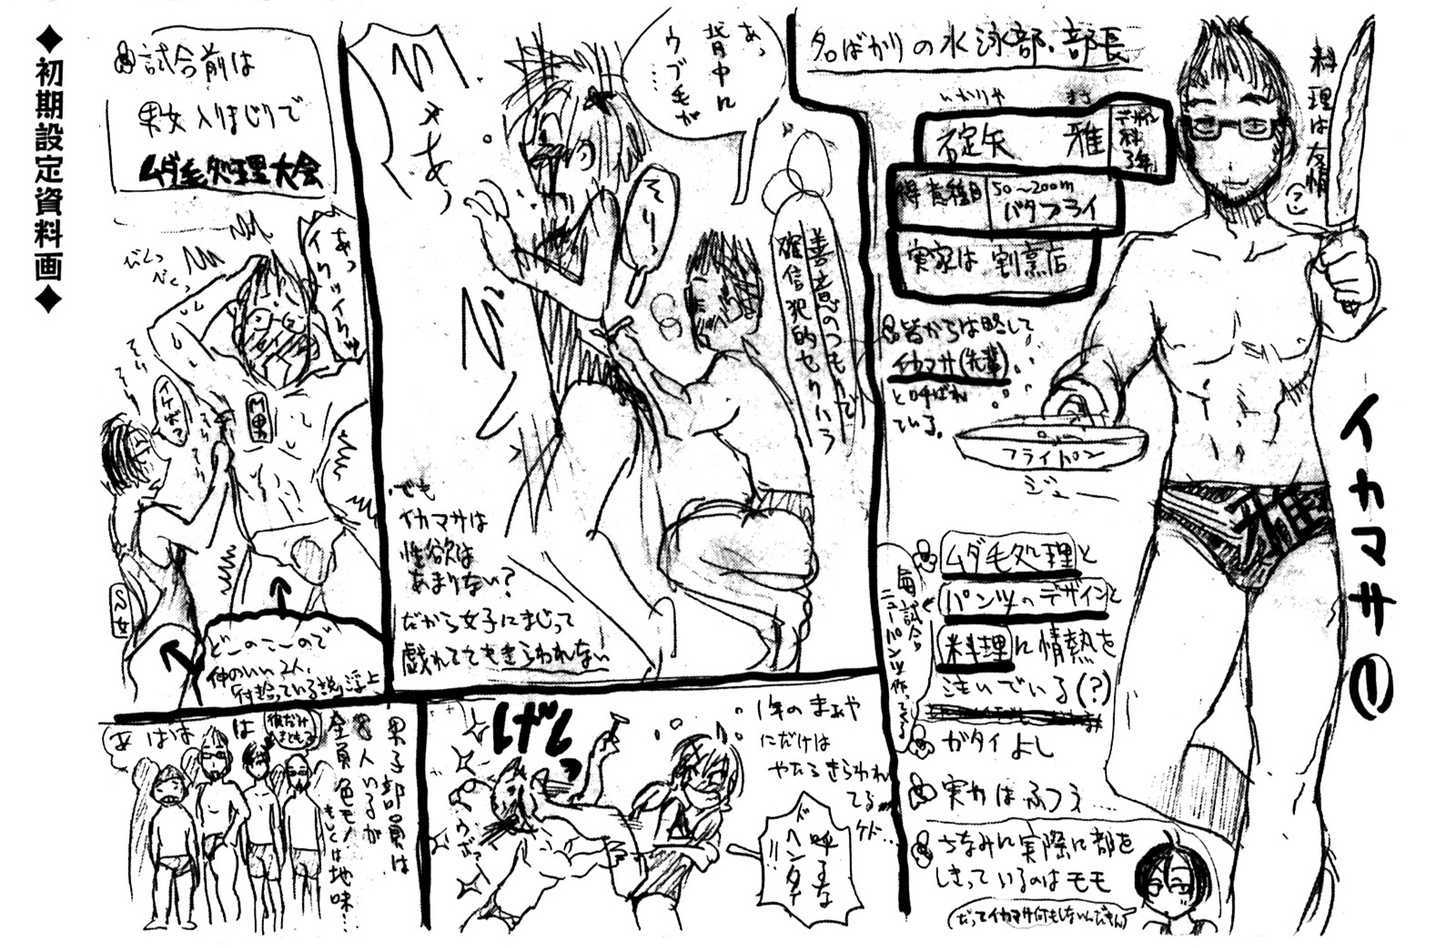 ◆初期設定資料画◆
イカマサ①
料理は友情
名ばかりの水泳部・部長
いかりや
碇矢 雅
デザイン科3年
得意種目
50〜200m
バタフライ
実家は割烹店
皆からは略して
イカマサ(先輩)
と呼ばれ
ている。
フライパン
ジュー
雅
ムダ毛処理と
パンツのデザインと
料理に情熱を
注いでいる(?)
毎試合
ニューパンツ作ってくる
ガタイよし
実力はふつう…
ちなみに実際に部を
しきっているのはモモ
(だってイカマサ何もしないんだもん)
あっ
背中に
ウブ毛が
…
そりっ
善意のつもりで
確信犯的セクハラ
でも
イカマサは
性欲は
あまりない?
だから女子にまじって
戯れててもきらわれない
試合前は
男女入りまじりで
ムダ毛処理大会
あっ
びくっ
びくっ
そり
そり
M男
S女
どこのここので
仲のいい2人。
付き合っている説浮上
男子部員は
8人いるが
全員色モノ
もしくは地味…
あははは
げしっ
1年のまぁや
にだけは
やたらきらわれ
てる
ケド…
呼ぶな
ドヘンタイ
!!